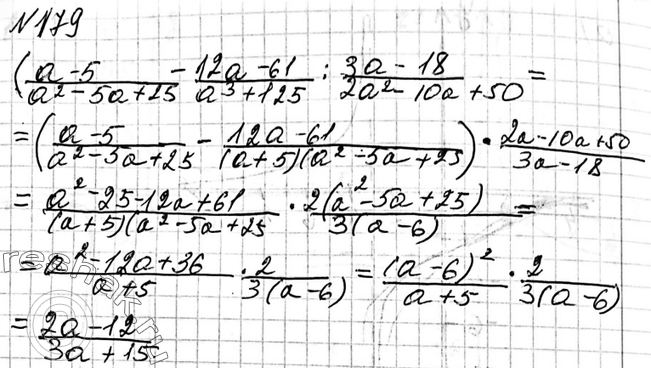 №179
(a-5/a²-5a+25 - 12a-61/a³+125 : 3a-18/2a²-10a+50 =
= (a-5/a²-5a+25 - 12a-61/(a+5)(a²-5a+25) · 2a-10a+50/3a-18
= a²-25-12a+61/(a+5)(a²-5a+25 · 2(a²-5a+25)/3(a-6) =
= a²-12a+36/a+5 · 2/3(a-6) = (a-6)²/a+5 · 2/3(a-6)
= 2a-12/3a+15